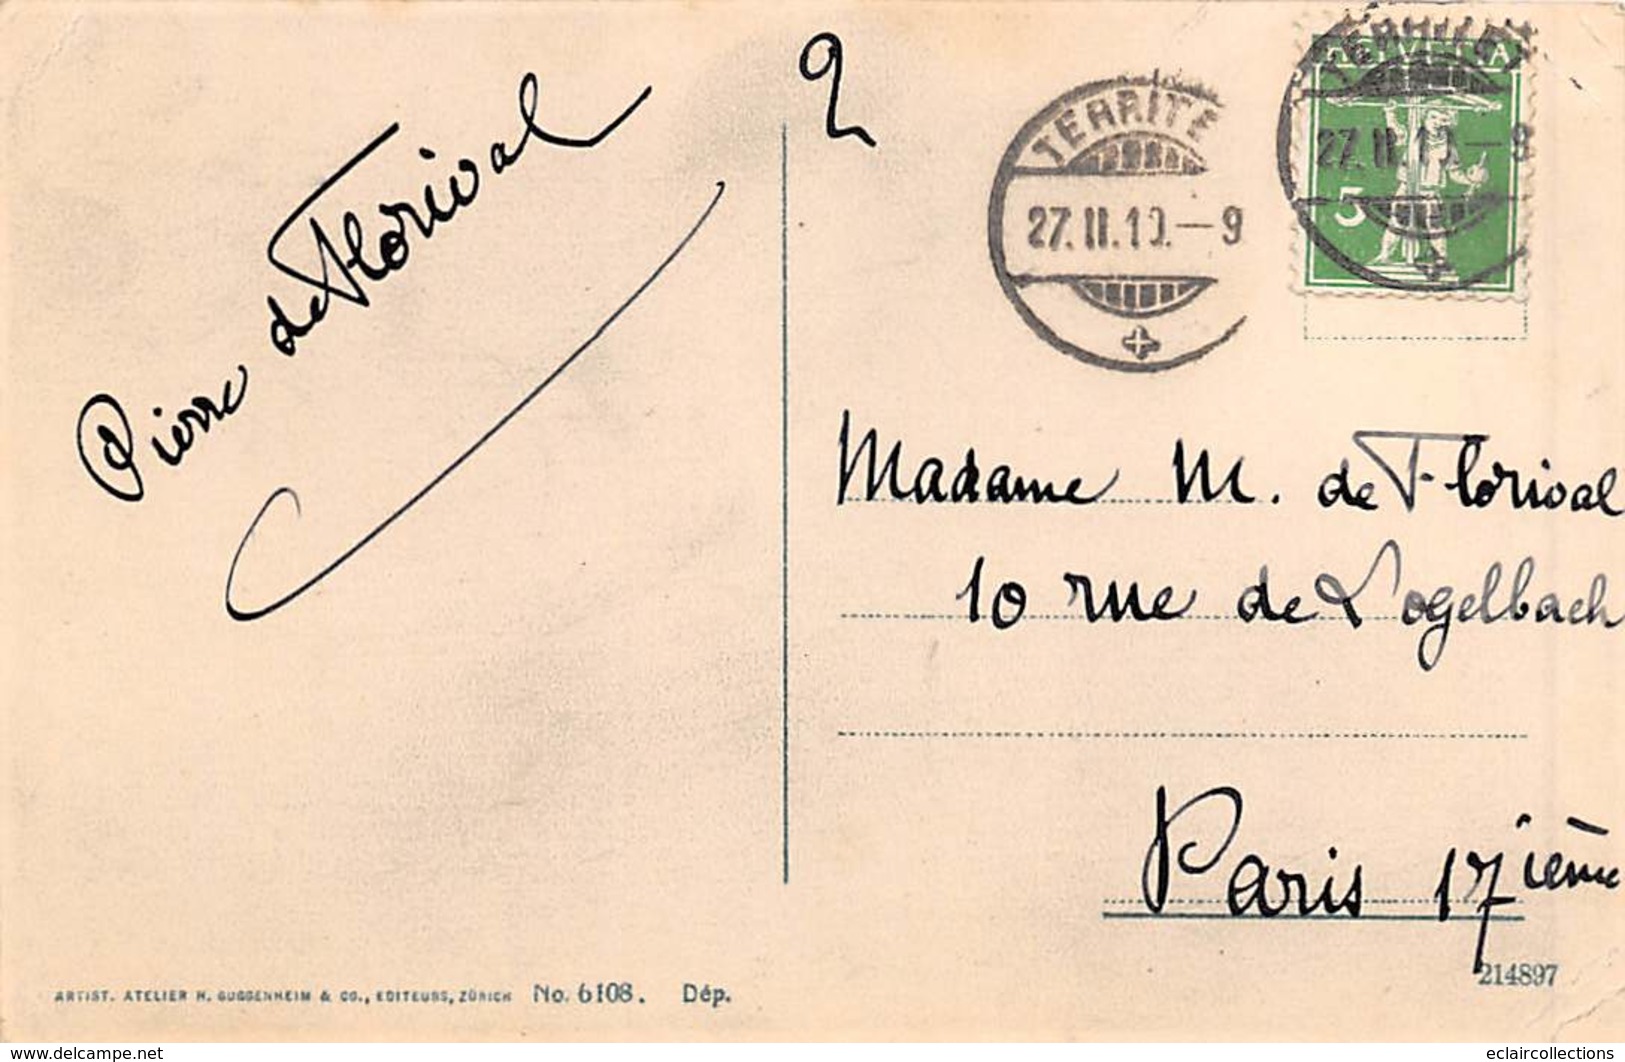 Pierre de Florival
2
TERRITE
27.II.10.–9
HELVETIA
27.II.10.–9
5
Madame M. de Florival
10 rue de Logelbach
Paris 17ième
214897
ARTIST. ATELIER H. GUGGENHEIM & CO., EDITEURS, ZÜRICH No. 6108. Dép.
www.delcampe.net
eclaircollections